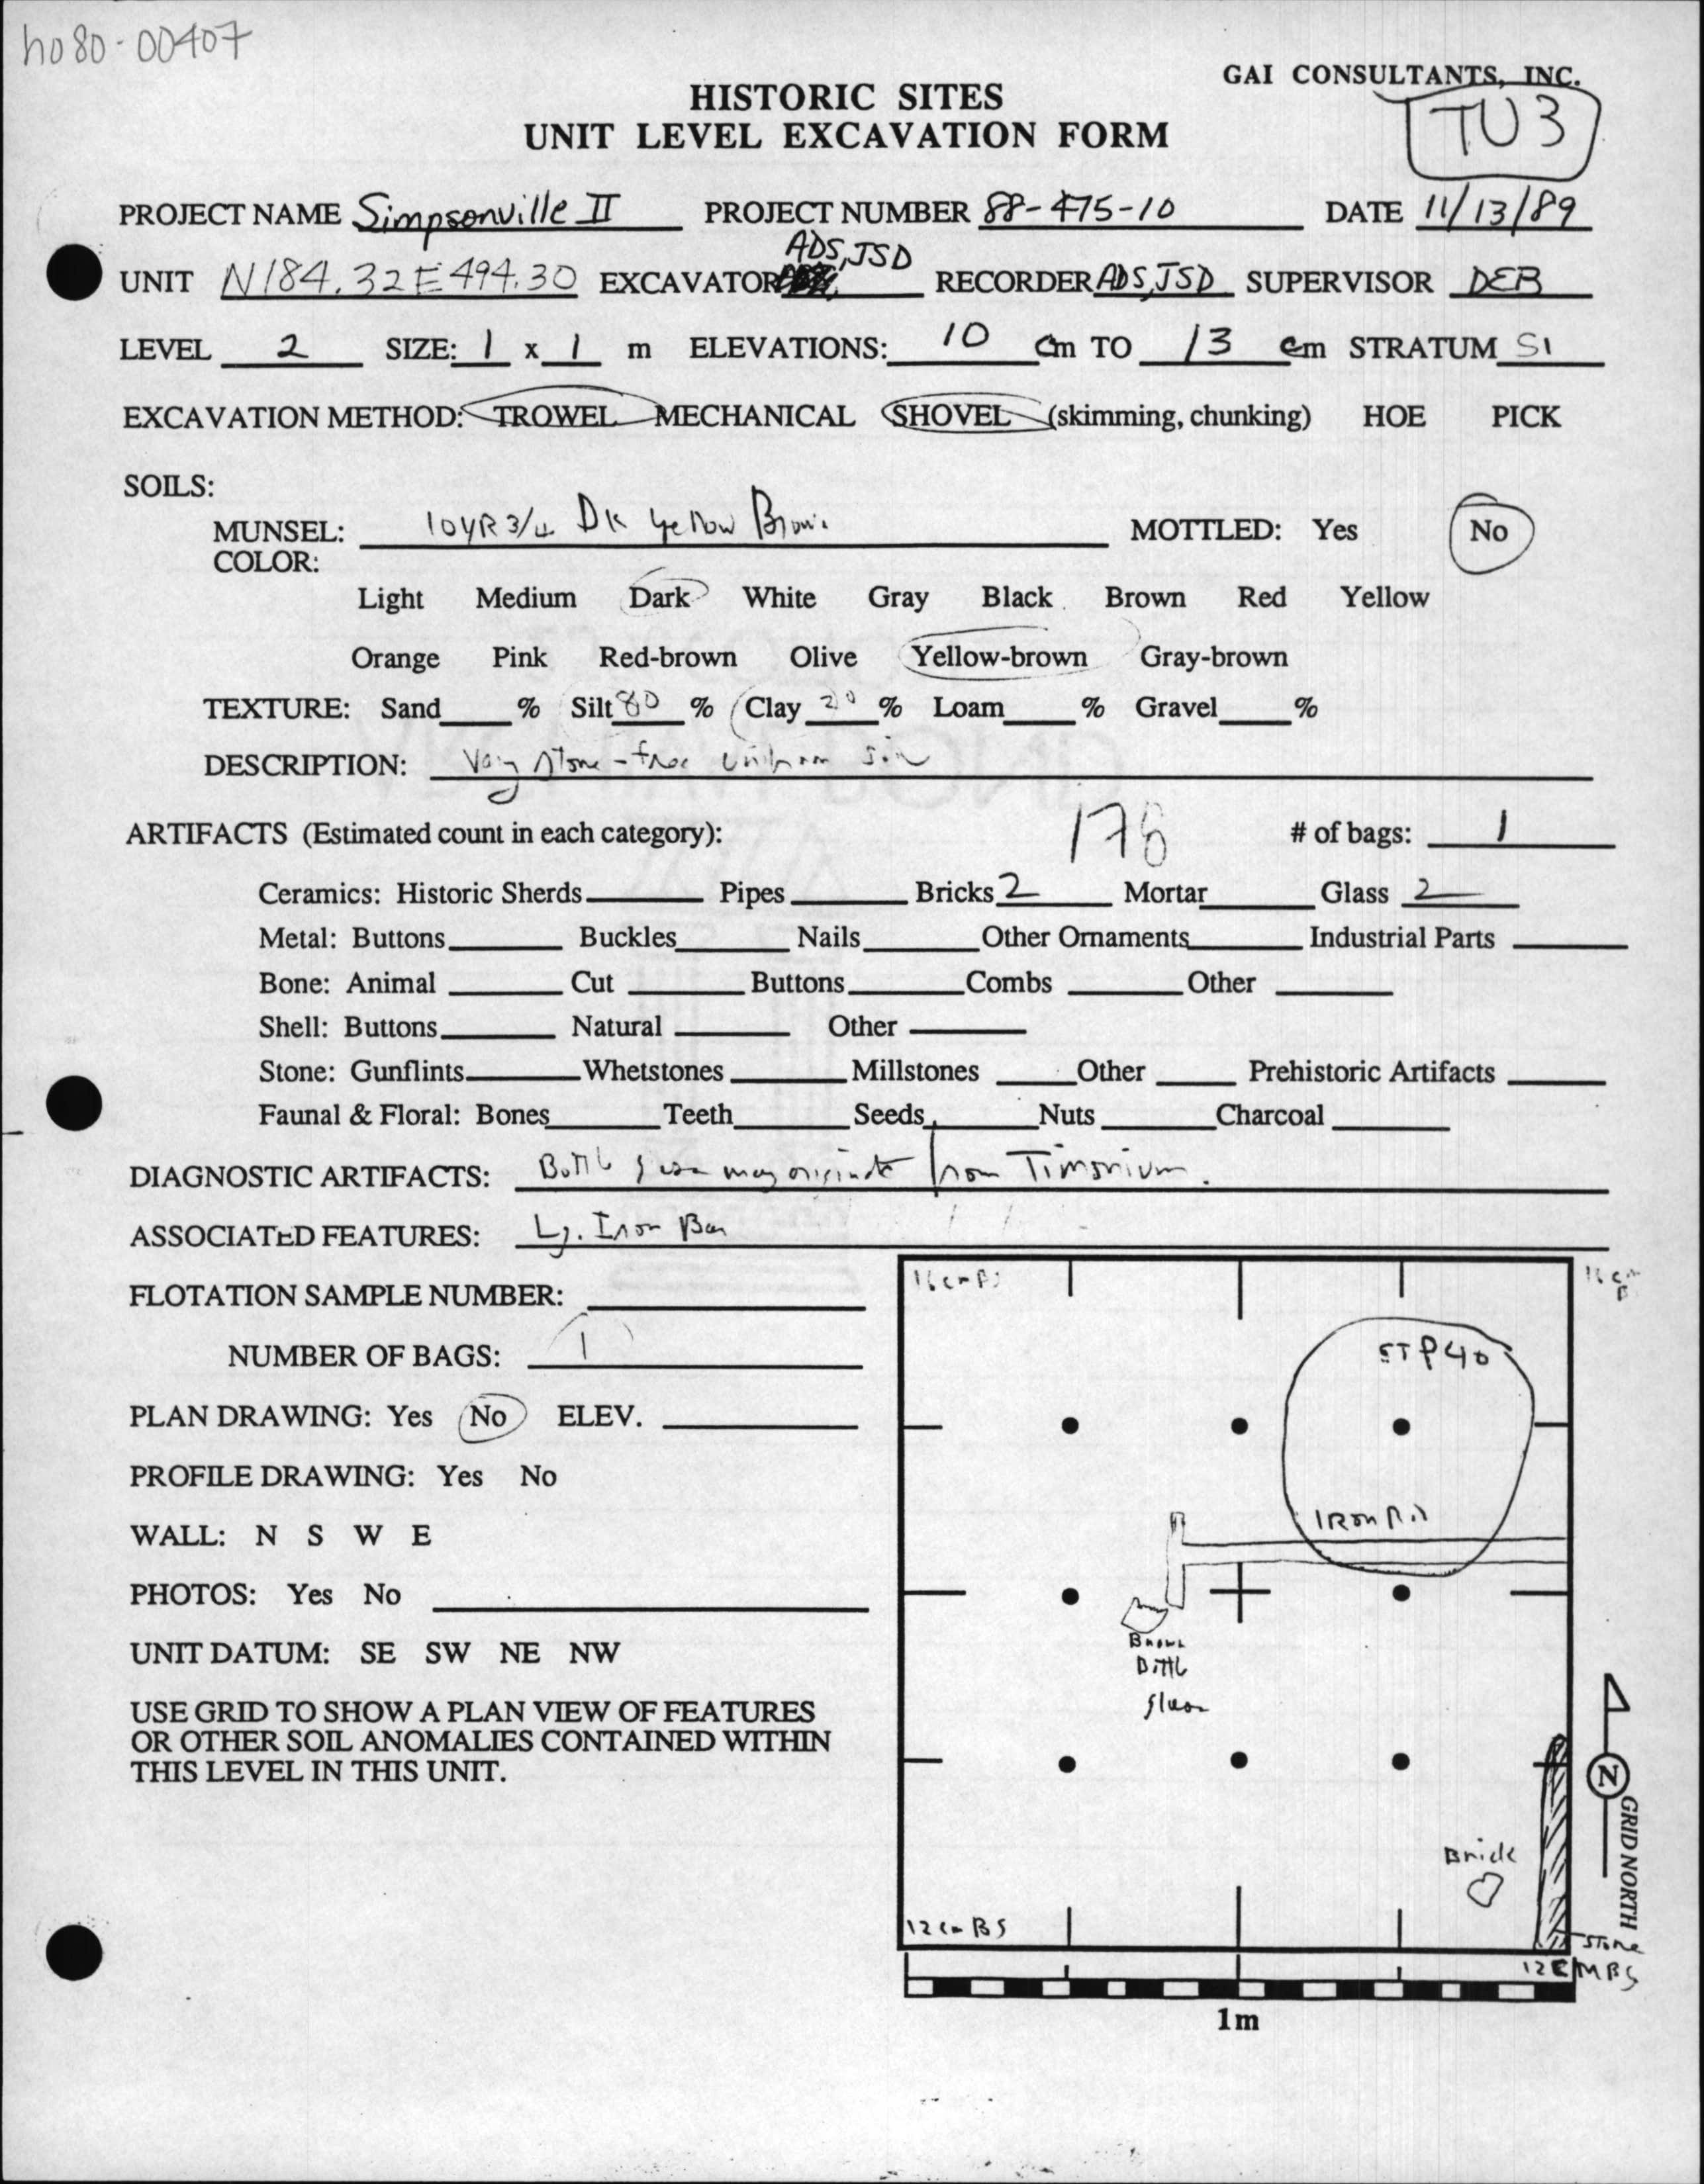 ho80-00407
GAI CONSULTANTS, INC.
TU3
HISTORIC SITES
UNIT LEVEL EXCAVATION FORM
PROJECT NAME Simpsonville II PROJECT NUMBER 88-475-10 DATE 11/13/89
ADS, JSD
UNIT N184.32E494.30 EXCAVATOR RECORDER ADS, JSD SUPERVISOR DEB
LEVEL 2 SIZE: 1 x 1 m ELEVATIONS: 10 cm TO 13 cm STRATUM S1
EXCAVATION METHOD: TROWEL MECHANICAL SHOVEL (skimming, chunking) HOE PICK
SOILS:
MUNSEL: 10YR 3/4 Dk Yellow Brown MOTTLED: Yes No
COLOR:
Light Medium Dark White Gray Black Brown Red Yellow
Orange Pink Red-brown Olive Yellow-brown Gray-brown
TEXTURE: Sand % Silt 80 % Clay 20 % Loam % Gravel %
DESCRIPTION: Very stone-free uniform soil
ARTIFACTS (Estimated count in each category): # of bags: 1
Ceramics: Historic Sherds Pipes Bricks 2 Mortar Glass 2
Metal: Buttons Buckles Nails Other Ornaments Industrial Parts
Bone: Animal Cut Buttons Combs Other
Shell: Buttons Natural Other
Stone: Gunflints Whetstones Millstones Other Prehistoric Artifacts
Faunal & Floral: Bones Teeth Seeds Nuts Charcoal
DIAGNOSTIC ARTIFACTS: Bottle glass may originate from Timonium.
ASSOCIATED FEATURES: Lg. Iron Bar
FLOTATION SAMPLE NUMBER:
NUMBER OF BAGS: 1
PLAN DRAWING: Yes No ELEV.
PROFILE DRAWING: Yes No
WALL: N S W E
PHOTOS: Yes No
UNIT DATUM: SE SW NE NW
USE GRID TO SHOW A PLAN VIEW OF FEATURES
OR OTHER SOIL ANOMALIES CONTAINED WITHIN
THIS LEVEL IN THIS UNIT.
16 cm BS
16 cm
STP40
Iron
Brown
Bottle
glass
Brick
N
GRID NORTH
12 cm BS
Stone
12 CMBS
1m